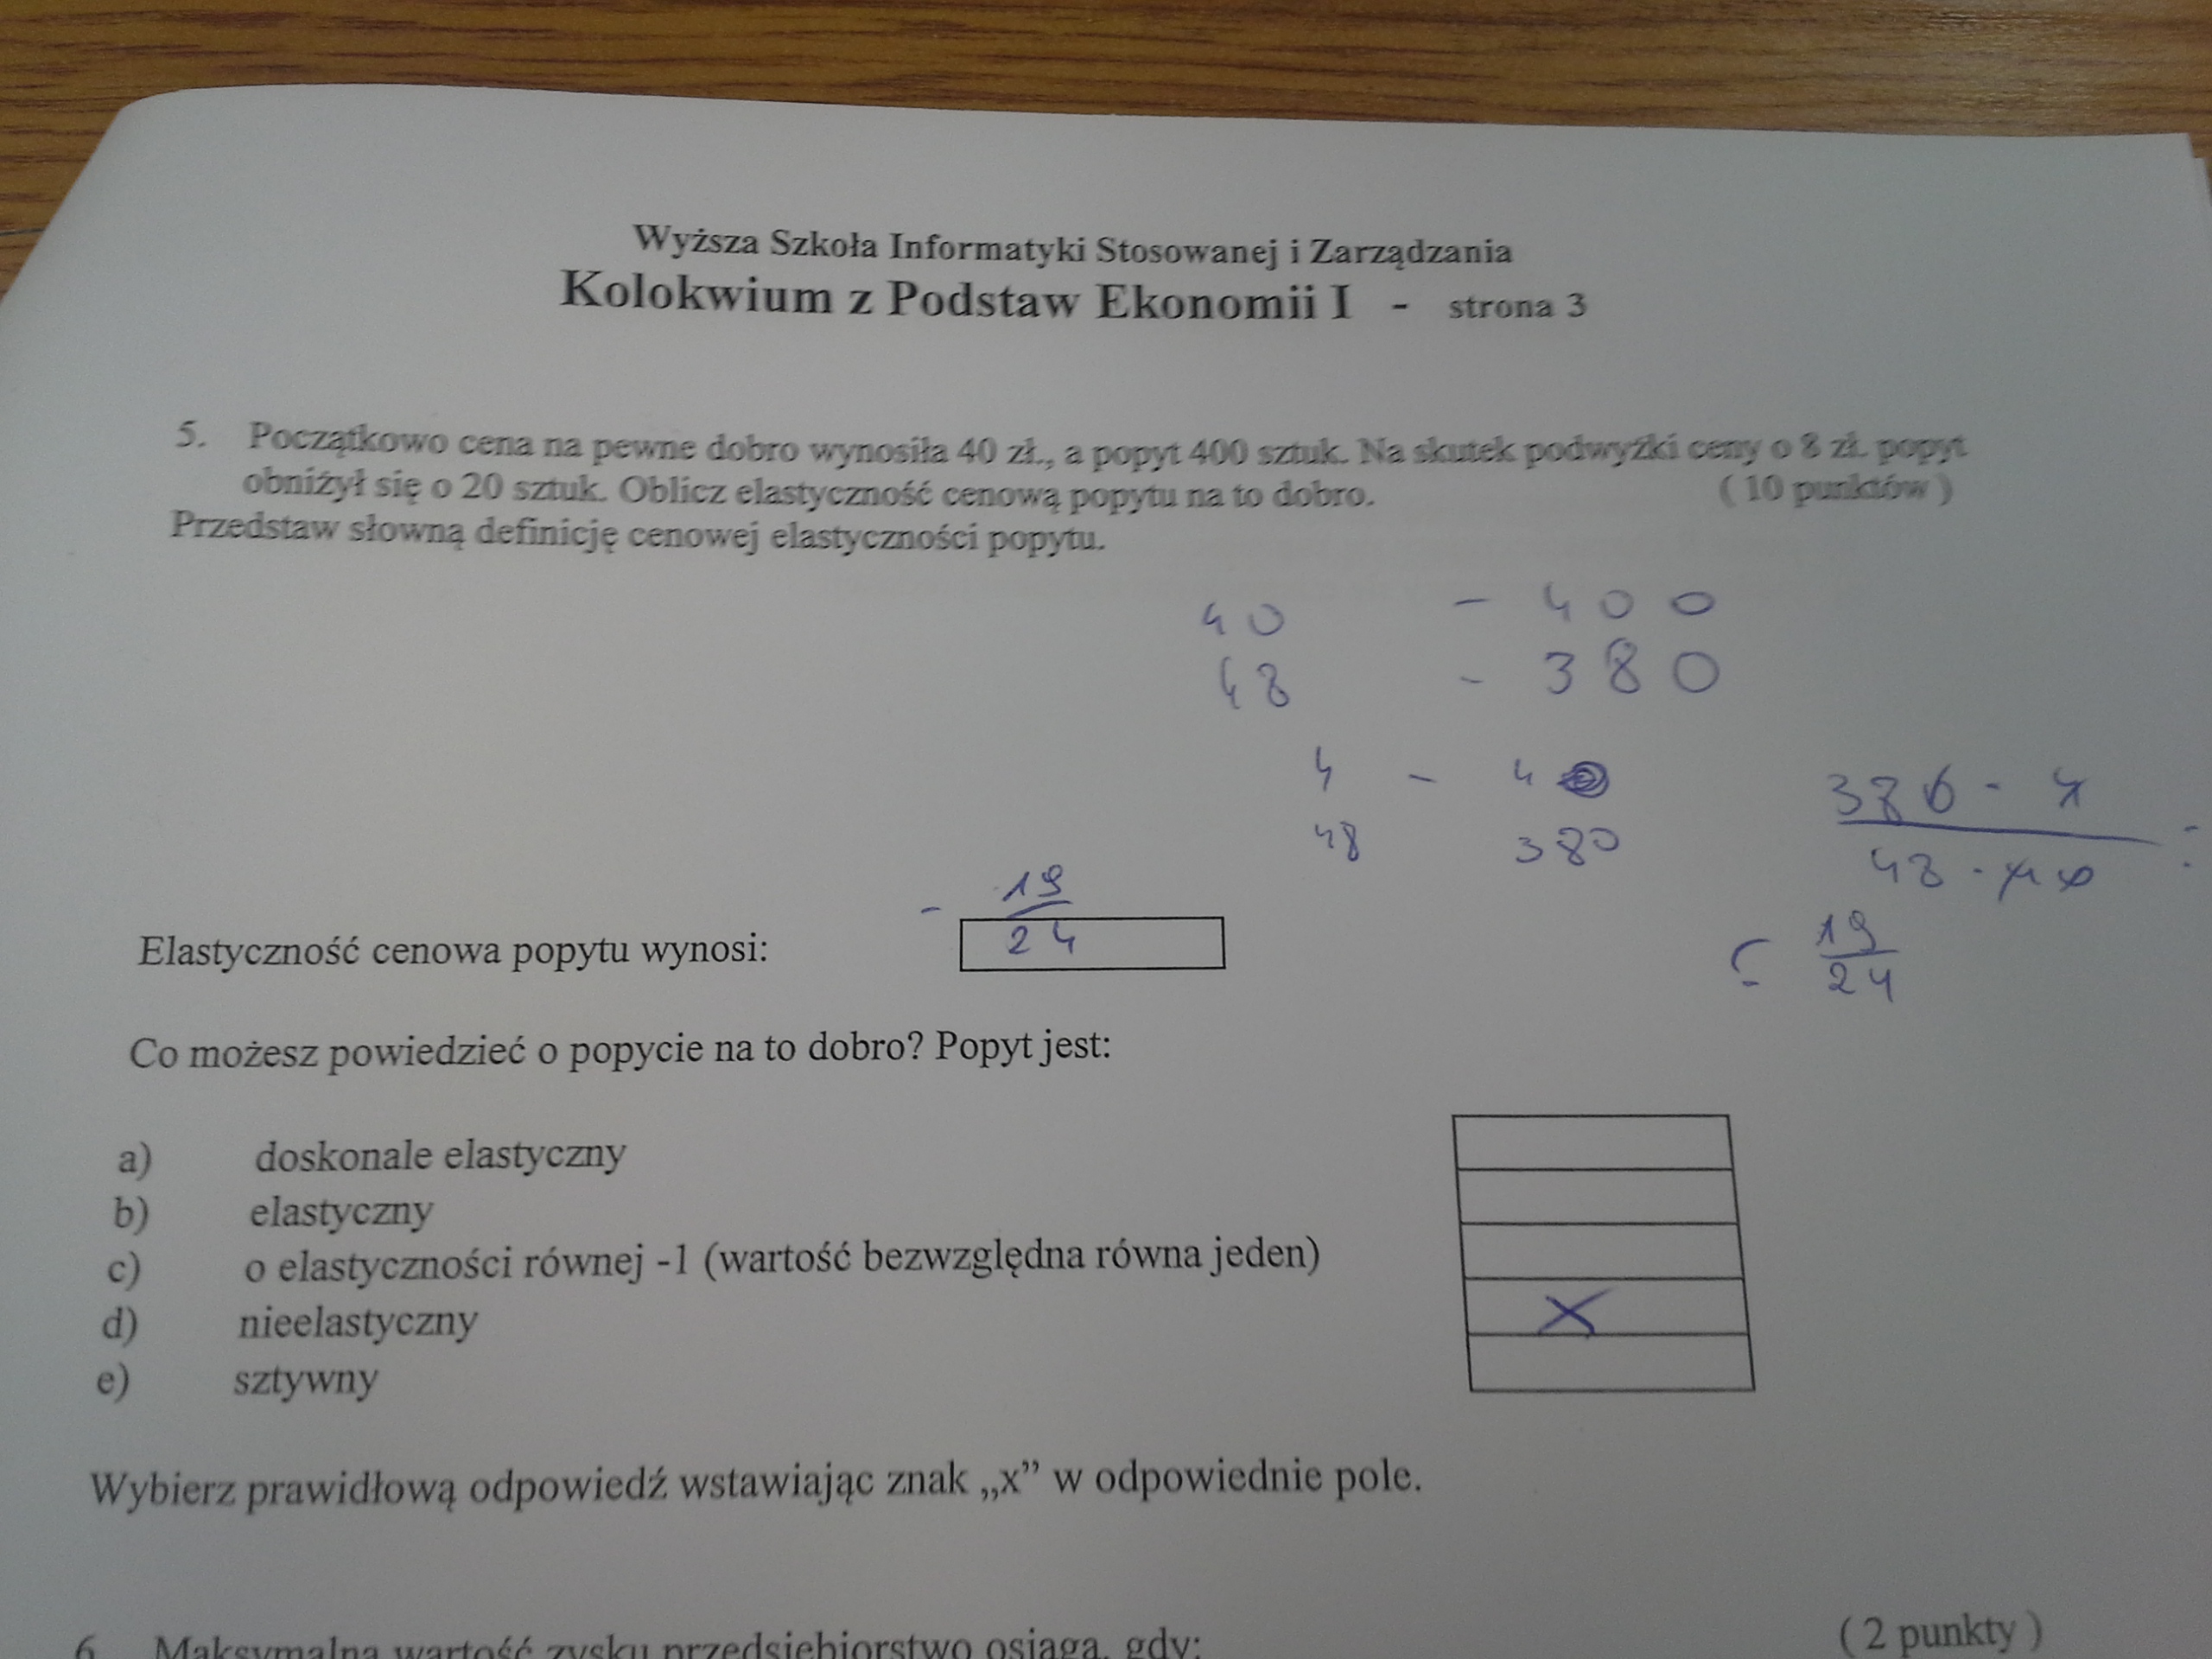 Wyższa Szkoła Informatyki Stosowanej i Zarządzania
Kolokwium z Podstaw Ekonomii I - strona 3
5. Początkowo cena na pewne dobro wynosiła 40 zł., a popyt 400 sztuk. Na skutek podwyżki ceny o 8 zł. popyt
obniżył się o 20 sztuk. Oblicz elastyczność cenową popytu na to dobro. ( 10 punktów )
Przedstaw słowną definicję cenowej elastyczności popytu.
40 - 400
48 - 380
4 - 4
48 380
380 - 4
48 ·
- 19
24
19
24
Elastyczność cenowa popytu wynosi:
Co możesz powiedzieć o popycie na to dobro? Popyt jest:
a) doskonale elastyczny
b) elastyczny
c) o elastyczności równej -1 (wartość bezwzględna równa jeden)
d) nieelastyczny X
e) sztywny
Wybierz prawidłową odpowiedź wstawiając znak „x” w odpowiednie pole.
6 Maksymalną wartość zysku przedsiębiorstwo osiąga, gdy: ( 2 punkty )